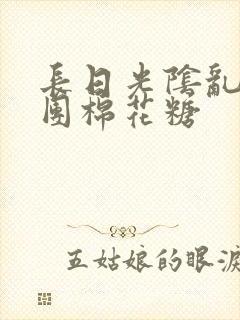 長日光陰亂
團棉花糖
五姑娘的眼淚